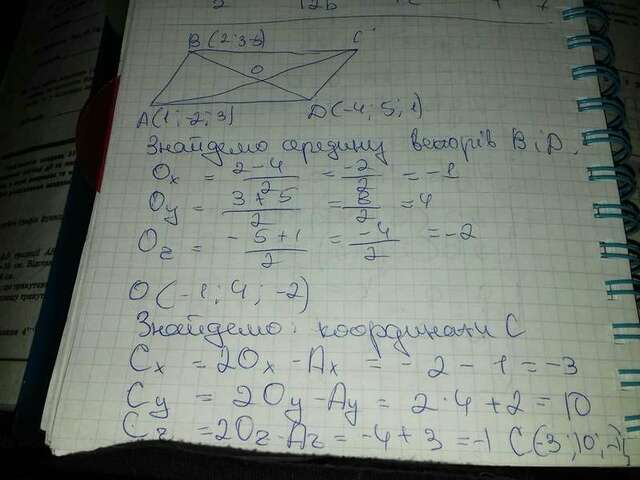 B(2;3-5) C
O
A(1;-2;3) D(-4;5;1)
Знайдемо середину векторів B i D.
Ox = 2-4/2 = -2/2 = -1
Oy = 3+5/2 = 8/2 = 4
Oz = -5+1/2 = -4/2 = -2
O(-1; 4; -2)
Знайдемо: координати C
Cx = 2Ox - Ax = -2 - 1 = -3
Cy = 2Oy - Ay = 2·4 + 2 = 10
Cz = 2Oz - Az = -4 + 3 = -1 C(-3;10;-1)